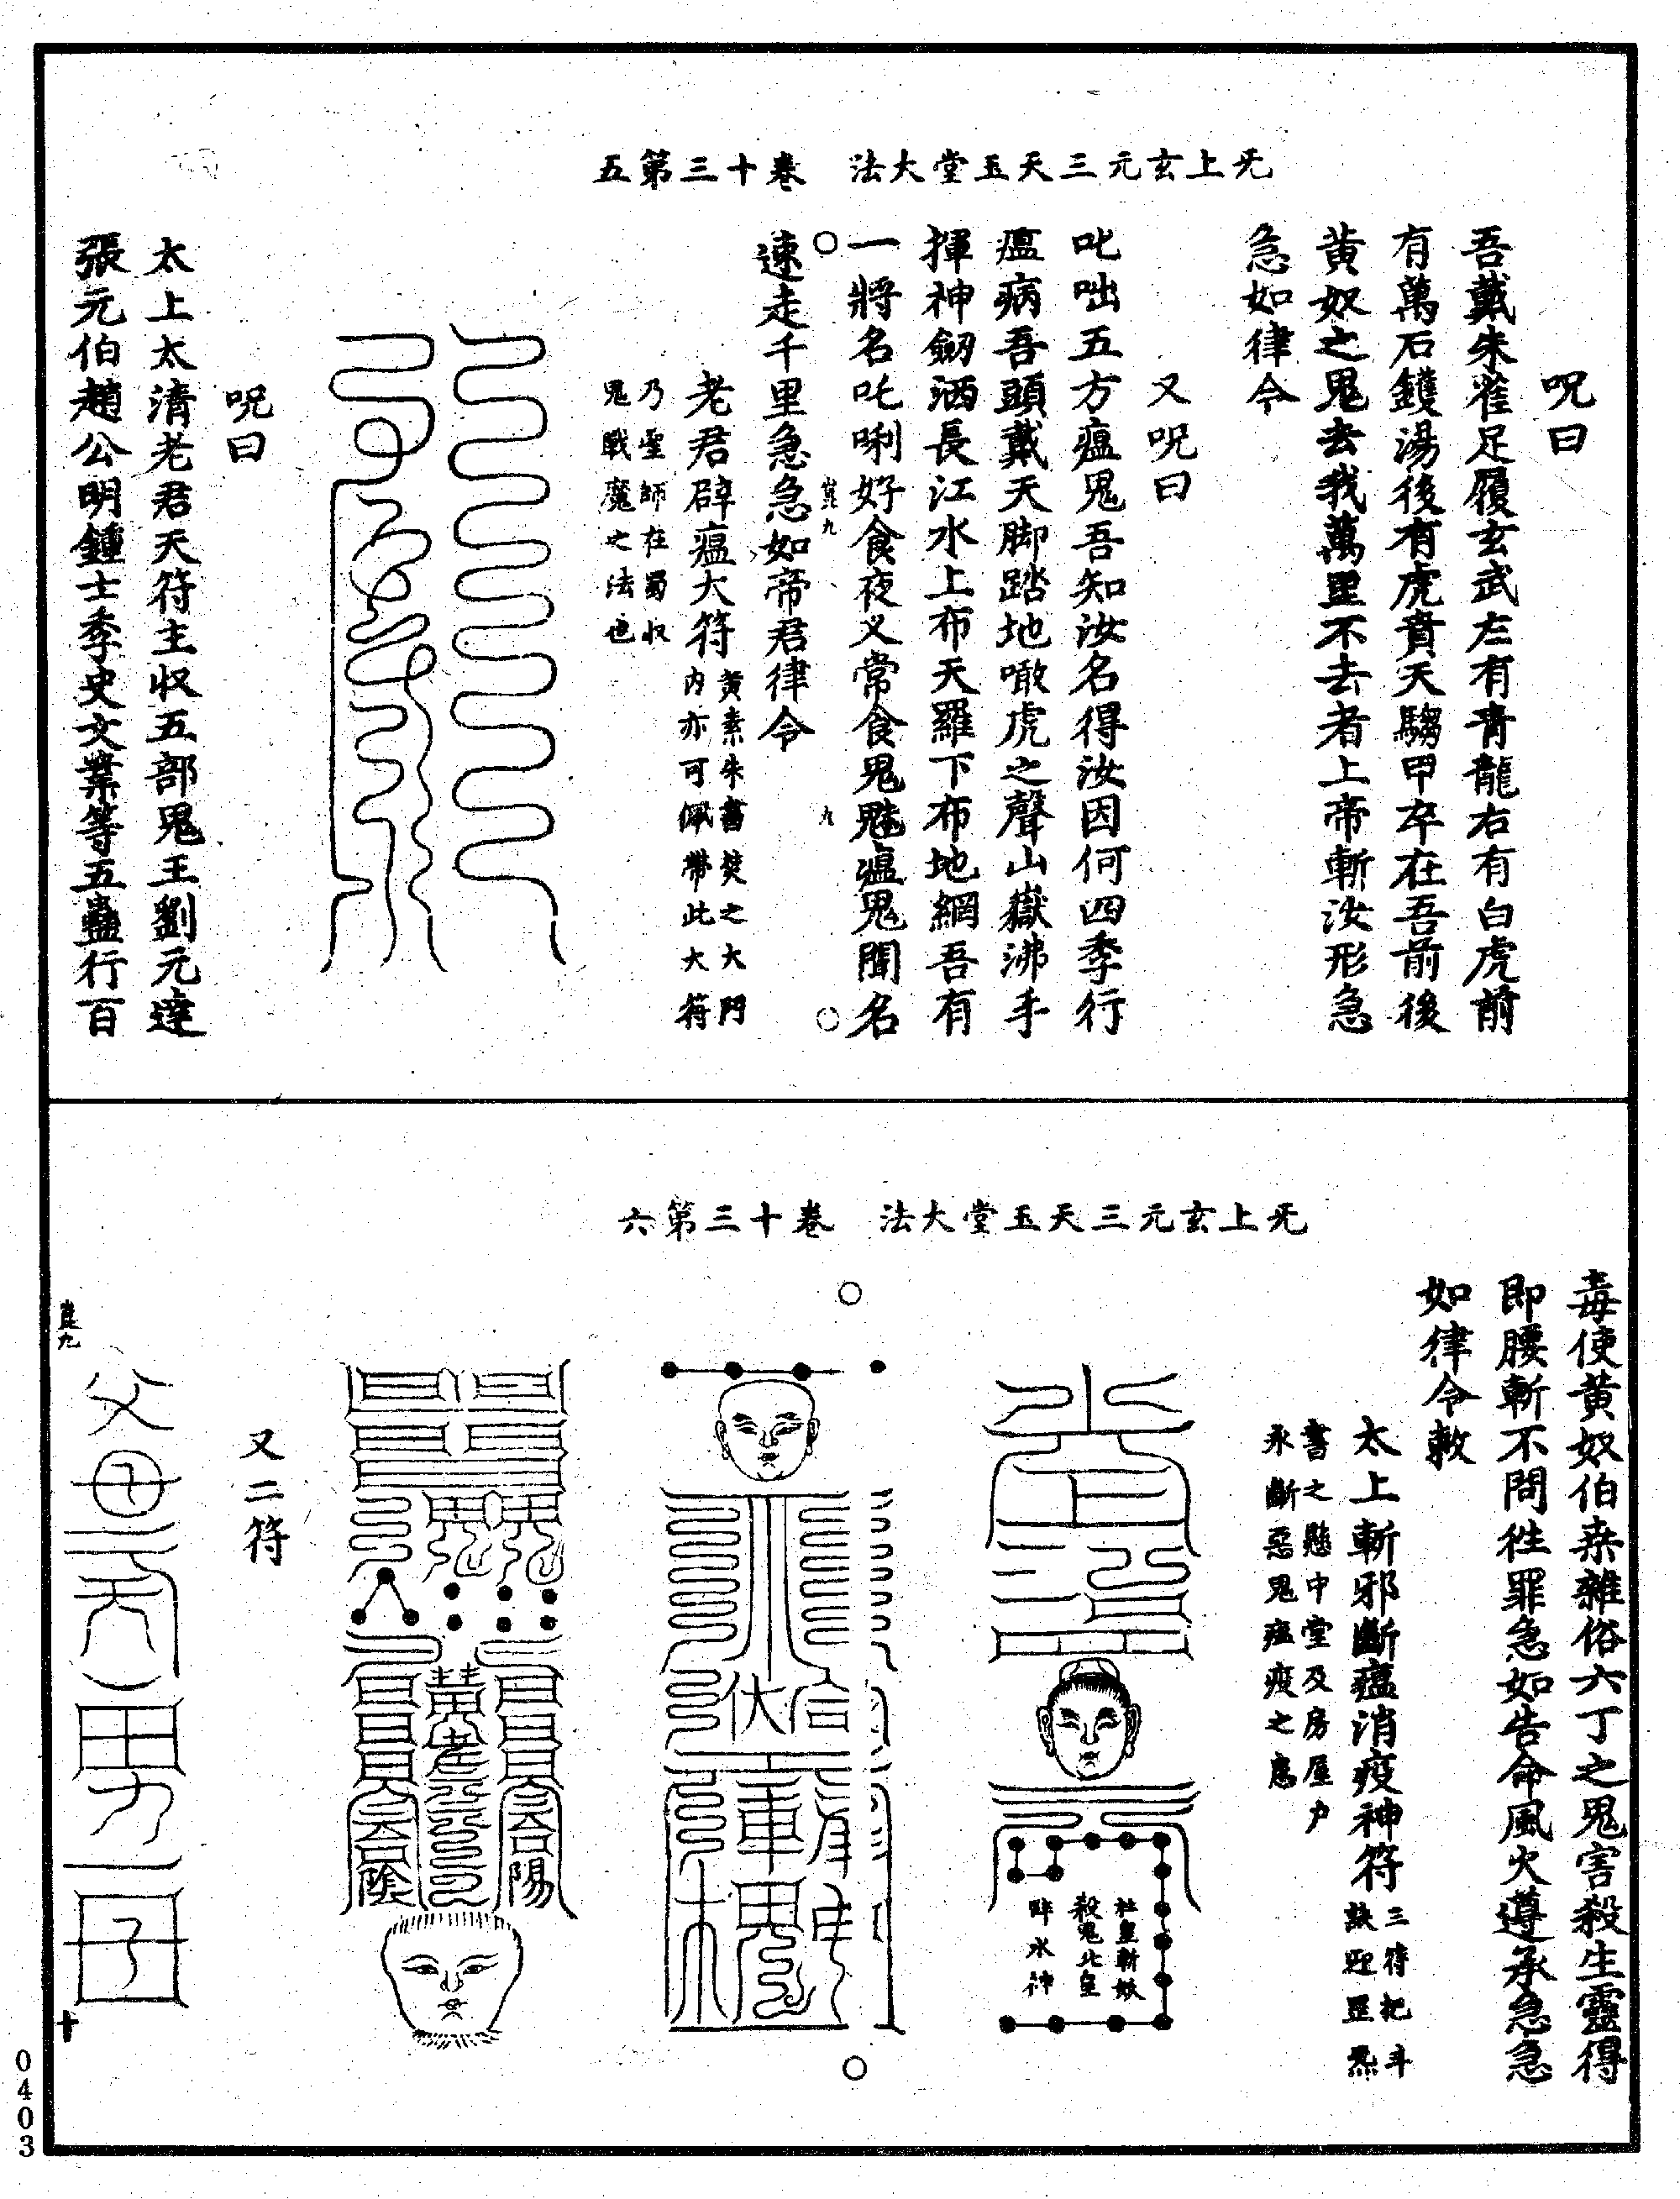 无上玄元三天玉堂大法　卷十三第五
呪曰
吾戴朱雀足履玄武左有青龍右有白虎前
有萬石鑊湯後有虎賁天騶甲卒在吾前後
黃奴之鬼去我萬里不去者上帝斬汝形急
急如律令
又呪曰
叱咄五方瘟鬼吾知汝名得汝因何四季行
瘟病吾頭戴天脚踏地噉虎之聲山嶽沸手
揮神劒洒長江水上布天羅下布地網吾有
一將名吒唎好食夜义常食鬼魅瘟鬼聞名
崑九
九
速走千里急急如帝君律令
老君辟瘟大符
黃素朱書焚之大門
內亦可佩帶此大符
乃聖師在蜀収
鬼戰魔之法也
呪曰
太上太清老君天符主収五部鬼王劉元達
張元伯趙公明鍾士季史文業等五蠱行百
无上玄元三天玉堂大法　卷十三第六
毒使黃奴伯桒雜俗六丁之鬼害殺生靈得
即腰斬不問徃罪急如告命風火遵承急急
如律令敕
太上斬邪斷瘟消疫神符
三符把斗
訣迎罡炁
書之懸中堂及房屋戶
永斷惡鬼瘟疫之患
社皇斬奴
殺鬼北皇
畔水神
伏
陽
黃
老
陰
又二符
崑九
父
母
男
子
十
0403